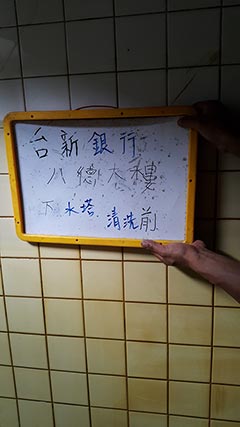 台新銀行
八德大樓
下水塔 清洗前